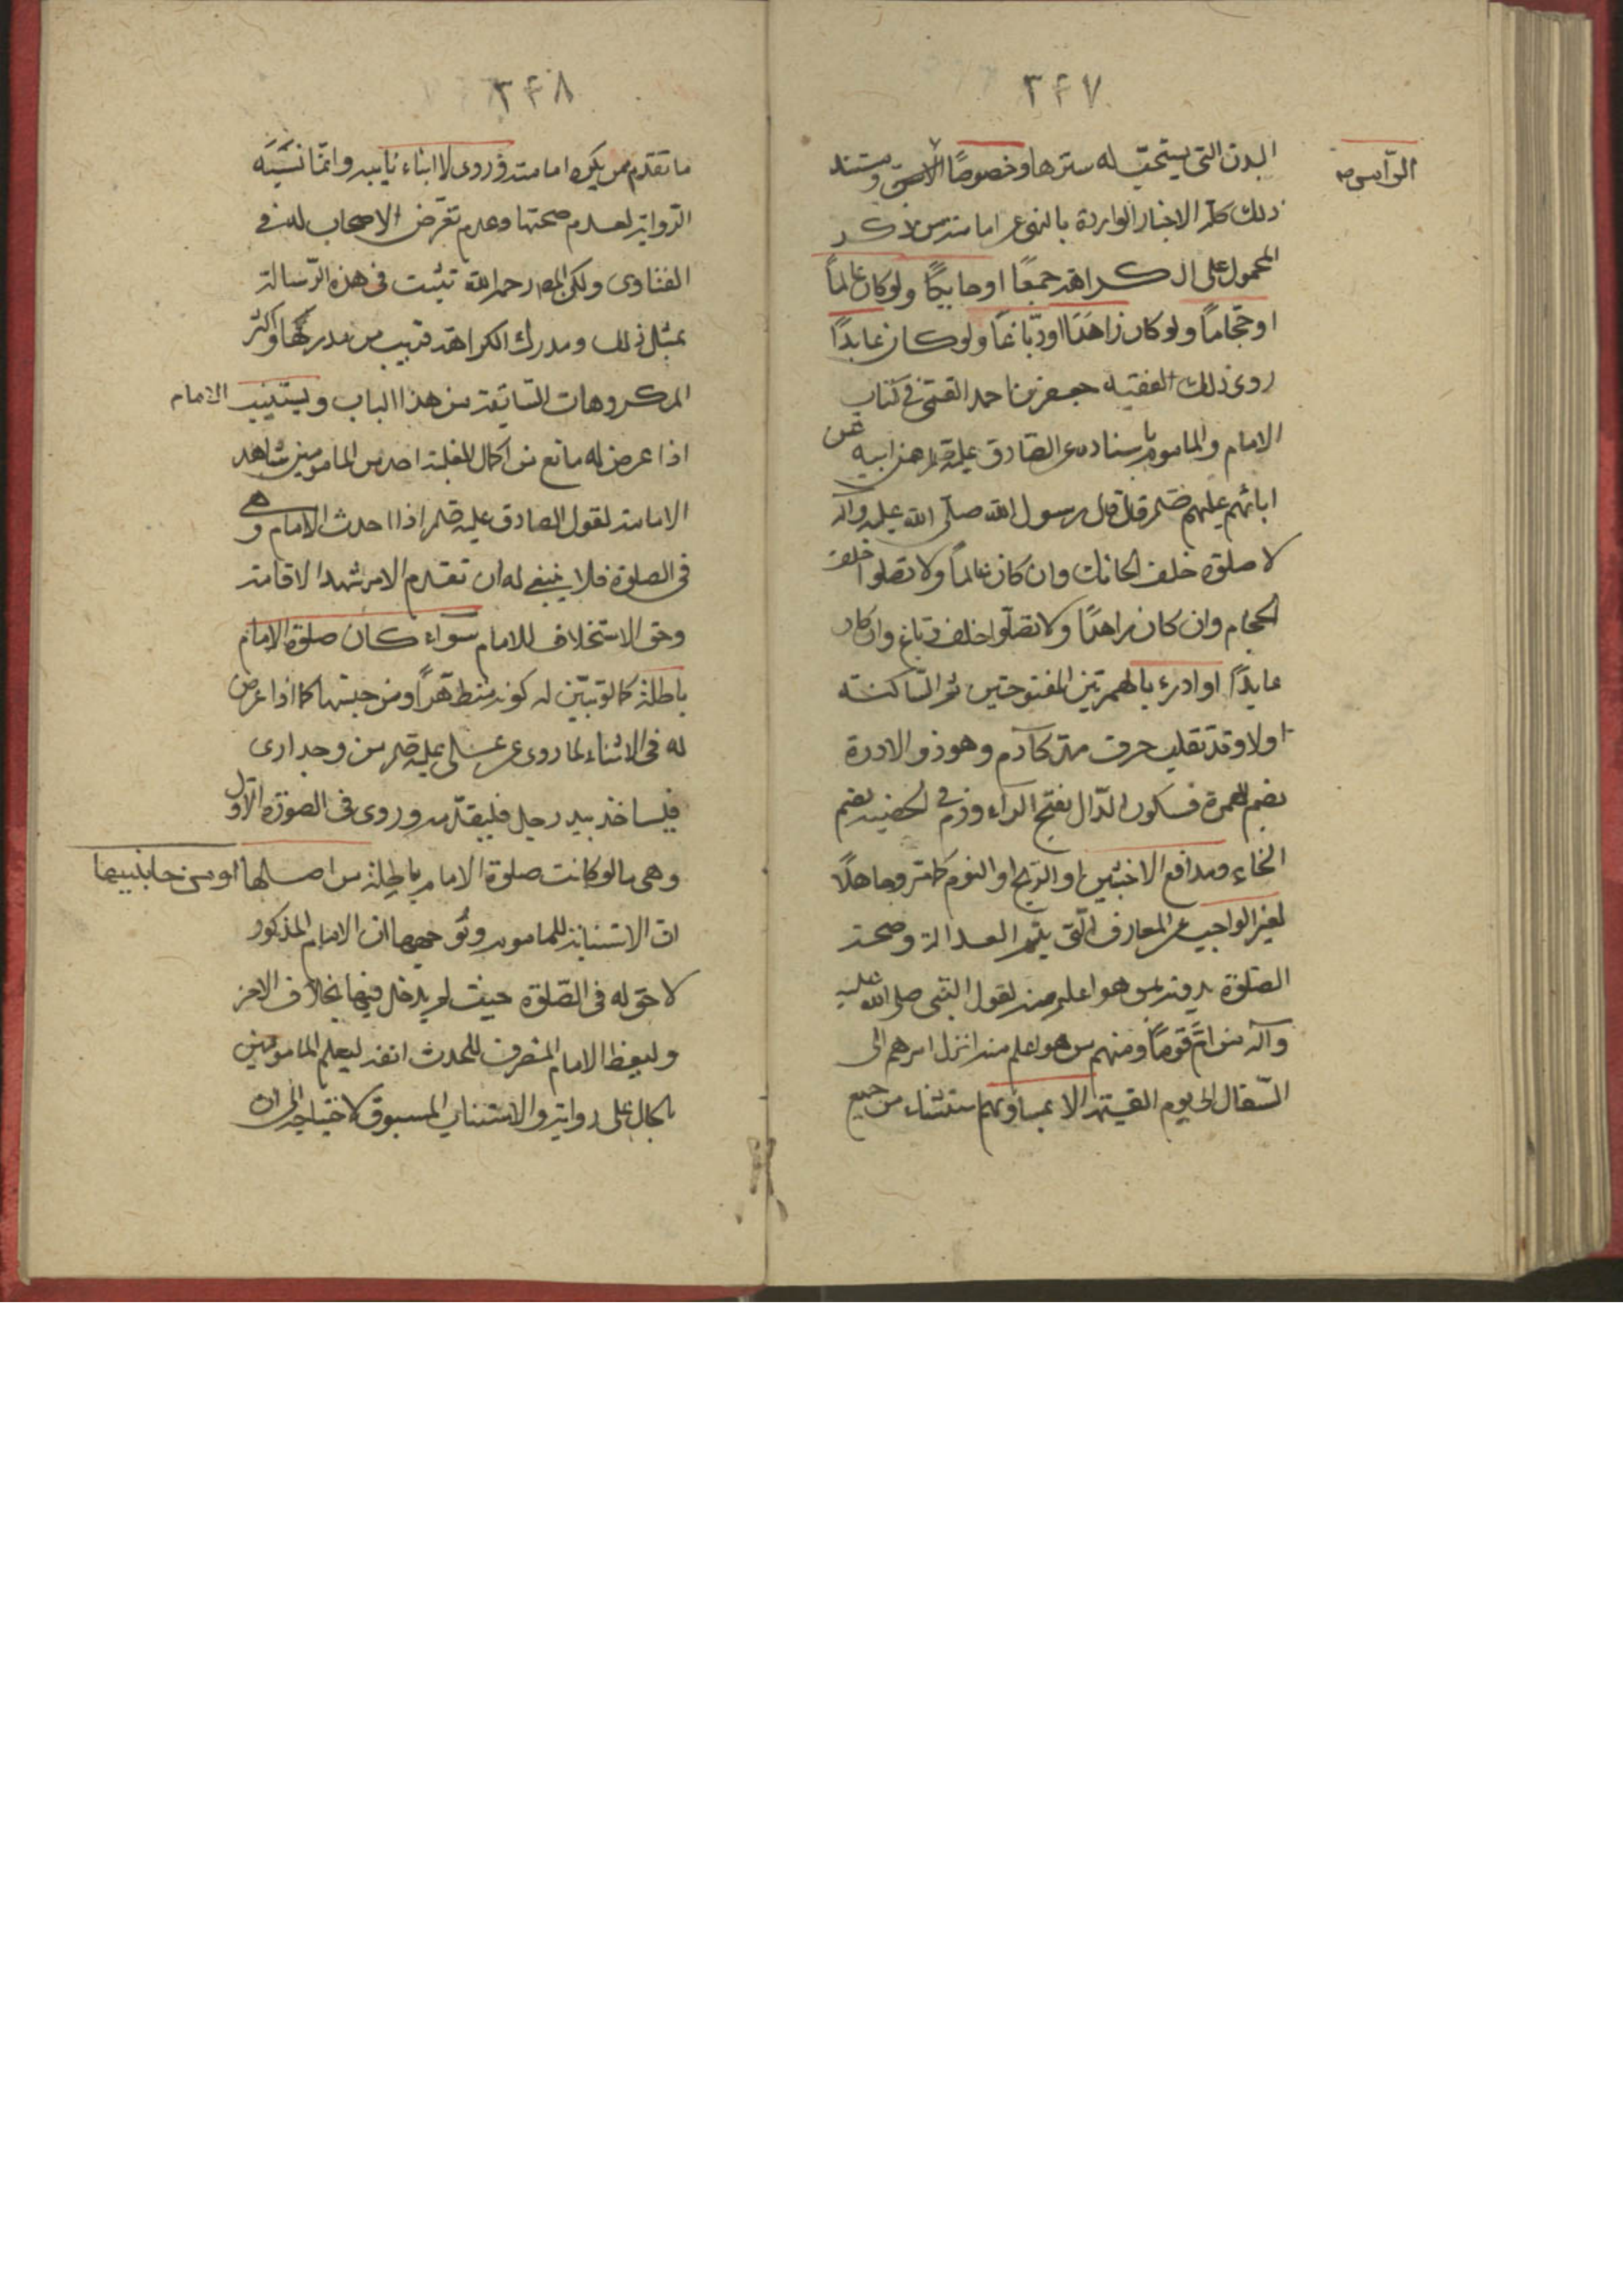 ٣۴٧
الرأس صح
البدن التي يستحب له سترها وخصوصًا ومستند
ذلك كله الاخبار الواردة بالنهي عن امامة من ذكر
المحمول على الكراهة جمعًا او حايكًا ولو كان عالمًا
او حجّامًا ولو كان زاهدًا او دبّاغًا ولو كان عابدًا
روى ذلك الفقيه جعفر بن احمد القمي في كتاب
الامام والماموم باسناده عن الصادق عليه عن ابيه عن
ابائهم عليهم قال قال رسول الله صلى الله عليه وآله
لا صلوة خلف الحائك وان كان عالمًا ولا تصلوا خلف
الحجام وان كان زاهدًا ولا تصلّوا خلف دباغ وان كان
عابدًا او ادرء بالهمزتين المفتوحتين ثم الساكنة
اولا وقد تقلب حرف مدّ كآدم وهو ذو الادرة
بضم الهمزة فسكون الدّال بفتح الراء وزم في الخصيه بضم
الخاء ومدافع الاخبثين او الريح او النوم كما مر وجاهلًا
لغير الواجب من المعارف الّتي يتم العدالة وصحة
الصلوة بدونه لمن هو اعلم منه لقول النبي صلى الله عليه
وآله من امّ قومًا ومنهم من هو اعلم منه لم يزل امرهم الى
السّفال الى يوم القيمة الا بمساويهم استثناء من جميع
٣۴٨
ما تقدم ممن يكره امامته وروى لا ابناء نابيه وانما نسبته
الرواية لعدم صحتها وعدم تعرّض الاصحاب له في
الفتاوى ولكن المصـ رحمه الله تثبت في هذه الرّسالة
بمثل ذلك ومدرك الكراهة قريب من مدركها واكثر
المكروهات السابقة من هذا الباب ويستنيب الامام
اذا عرض له مانع من اكمال احد من المامومين شاهد
الامامة لقول الصادق عليه اذا احدث الامام وهو
في الصلوة فلا ينبغي له ان تقدم الا من شهد الاقامة
وحق الاستخلاف للامام سواء كان صلوة الامام
باطلة كما لو تبيّن له كونه متطهرًا ومن حينها كما اذا عرض
له في الاثناء لما روى عن علي عليه من وجد اذى
فلياخذ بيد رجل فليقدّمه وروى في الصورة الاولى
وهي ما لو كانت صلوة الامام باطلة من اصلها او من جانبيهما
ان الاستنابة للماموم ووجهها ان الامام المذكور
لا حق له في الصّلوة حيث لم يدخل فيها بخلاف الاخر
وليعظ الامام المنصرف للحدث انفه ليعلم المامومين
بالحال على رواية والاستناب المسبوق لاحتياجه الى ان